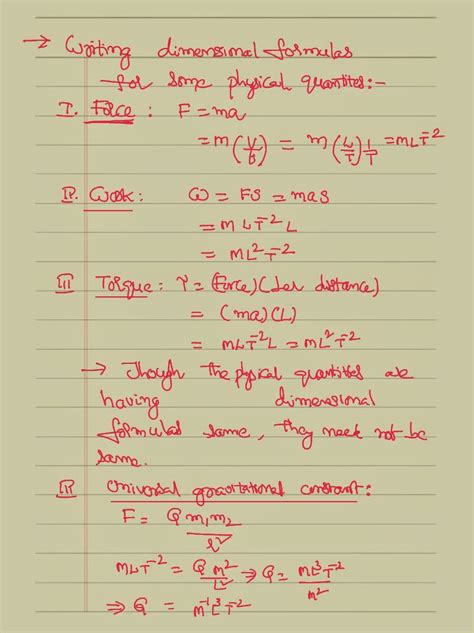 → Writing dimensional formulas
for some physical quantites:-
I. Force : F = ma
= m(V/t) = m(L/T)1/T = MLT⁻²
II. Work : W = FS = mas
= MLT⁻²L
= ML²T⁻²
III Torque : τ = (Force)(Ler distance)
= (ma)(L)
= MLT⁻²L = ML²T⁻²
→ Though the physical quantities are
having dimensional
formulas same, they need not be
same.
III Universal gravitational constant:
F = G m₁m₂/r²
MLT⁻² = G M²/L² ⇒ G = ML³T⁻²/M²
⇒ G = M⁻¹L³T⁻²